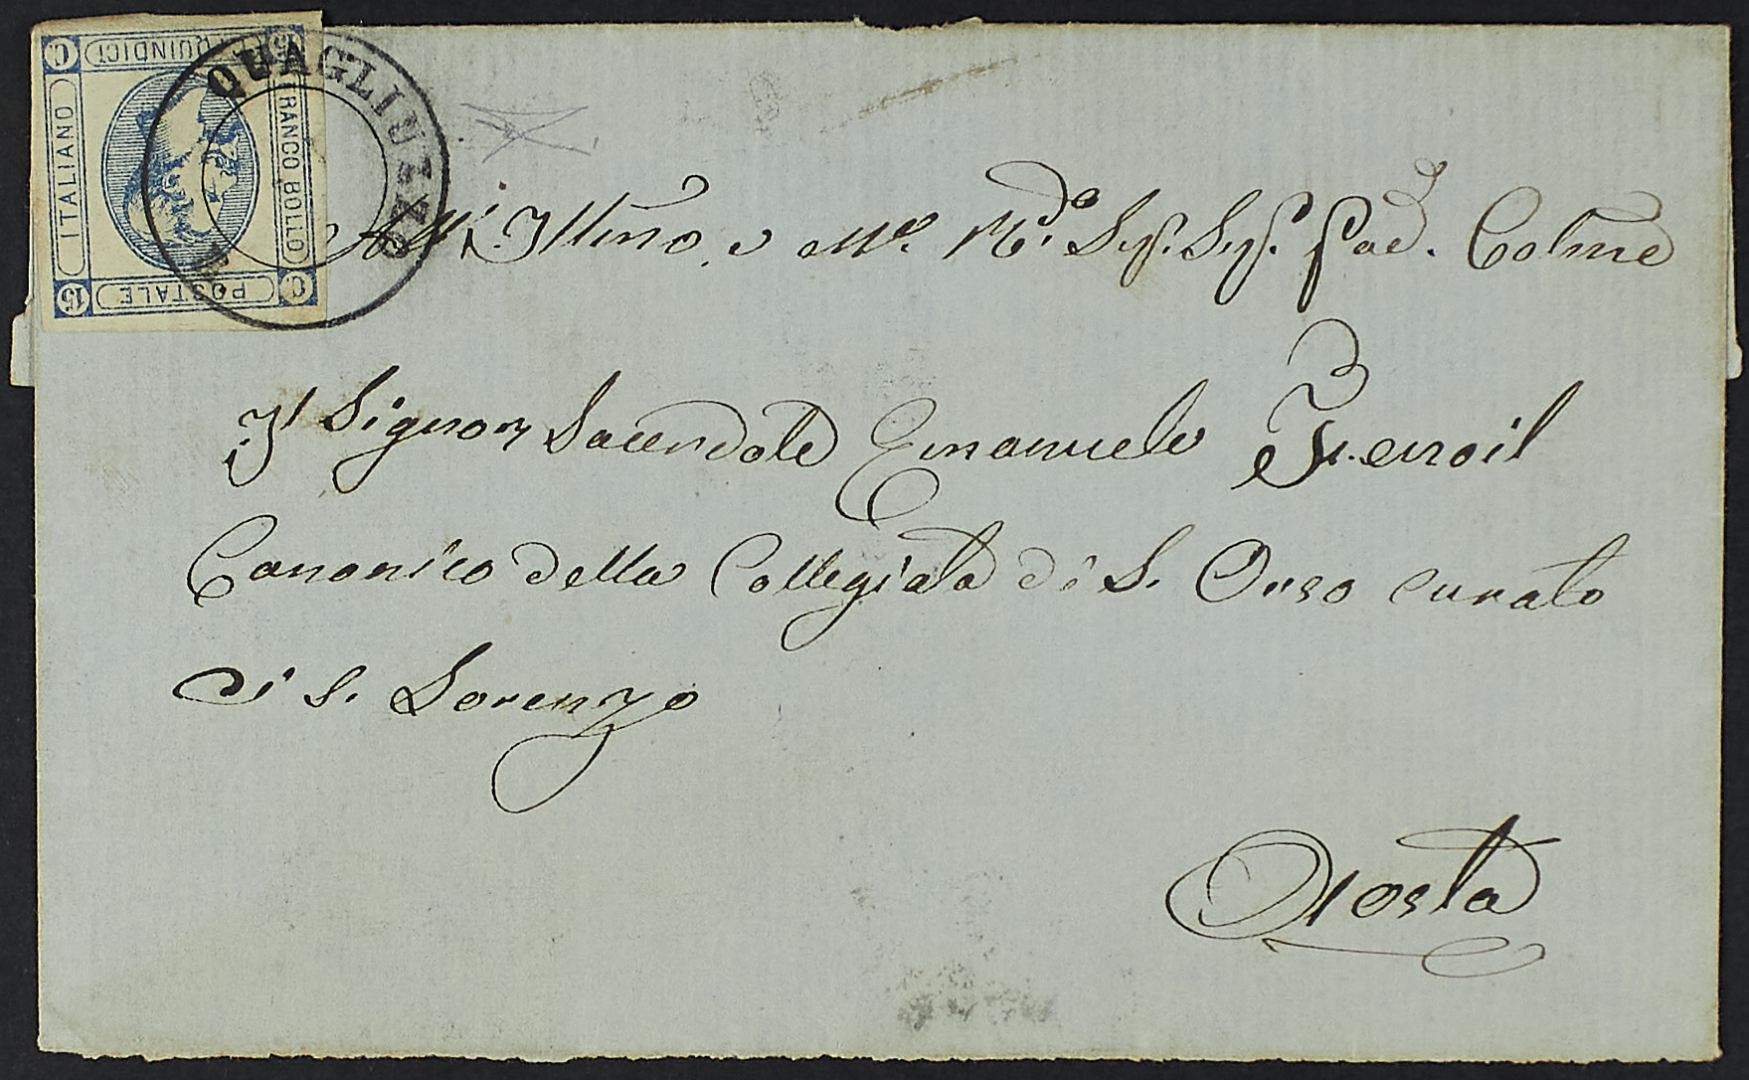 C QUINDICI 15
FRANCO BOLLO
C POSTALE 15
ITALIANO
QUAGLIUZZO
All'Illmo. e M.o R.do Sig. Sig. Pad. Colmo
Il Signor Sacerdote Emanuele
Canonico della Collegiata di S. Orso curato
di S. Lorenzo
Aosta